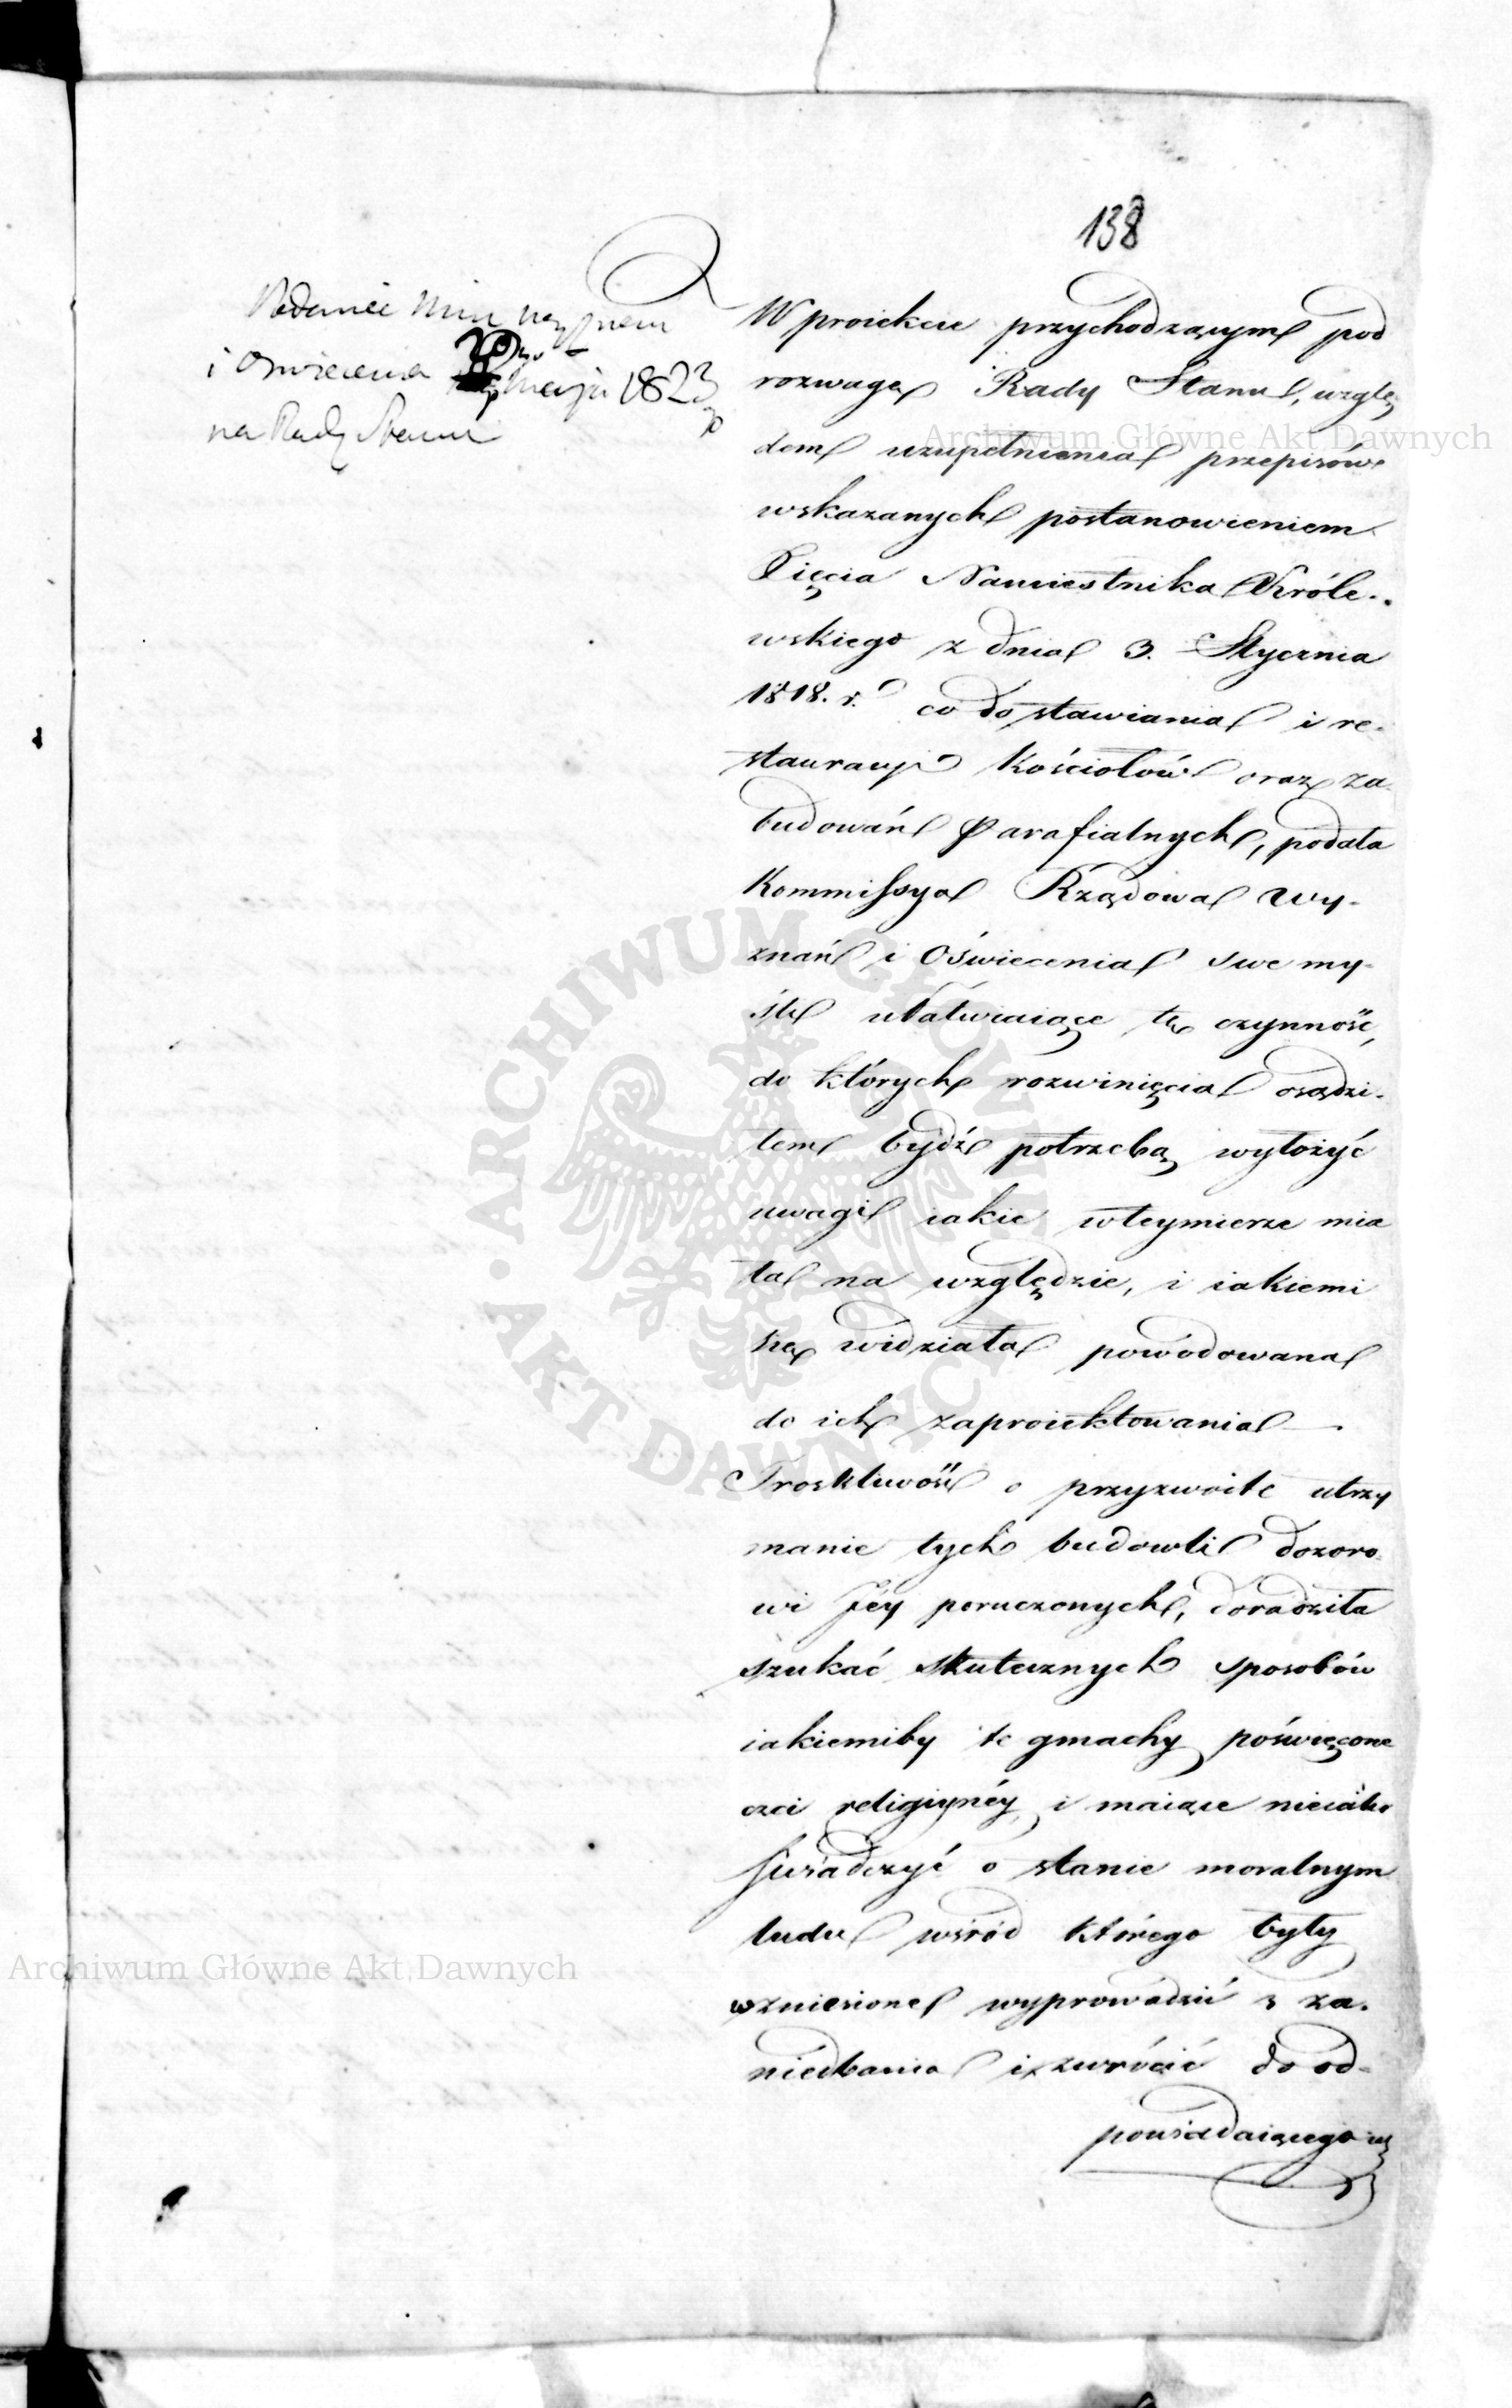 138
i Oświecenia 20go Maja 1823
na Radę Stanu
W proiekcie przychodzącym pod
rozwagę Rady Stanu, wzglę
dem uzupełnienia przepisów
wskazanych postanowieniem
Xięcia Namiestnika Króle-
wskiego z dnia 3. Stycznia
1818. r. co do stawiania i re-
stauracyi Kościołów oraz za-
budowań Parafialnych, podała
Kommissya Rządowa Wy-
znań i Oświecenia swe my-
śli ułatwiaiące tę czynność,
do których rozwinięcia osądzi-
łem bydź potrzebą wyłożyć
uwagi iakie wteymierze mia
ła na względzie, i iakiemi
się widziała powodowana
do ich zaproiektowania
Troskliwość o przyzwoite utrzy
manie tych budowli dozoro-
wi Jéy poruczonych, doradziła
szukać skutecznych sposobów
iakiemiby te gmachy poświęcone
czci religiynéy, i maiące nieiako
świadczyć o stanie moralnym
ludu wśród którego były
wzniesione wyprowadzić z za-
niedbania i zwrócić do od-
powiadaiącego
Archiwum Główne Akt Dawnych
Archiwum Główne Akt Dawnych
ARCHIWUM GŁÓWNE
AKT DAWNYCH